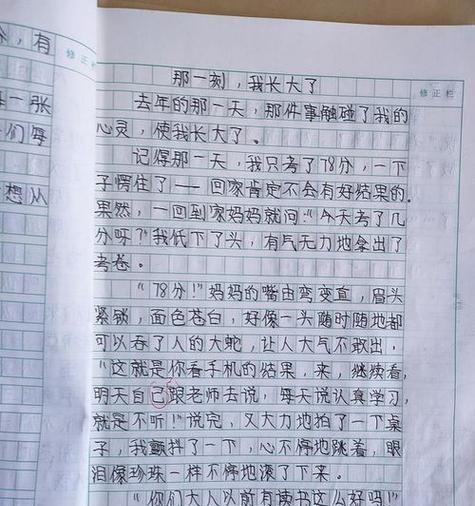 ，有
修正栏
一张
们每
想从
修正栏
那一刻，我长大了
去年的那一天，那件事触碰了我的
心灵，使我长大了。
记得那一天，我只考了78分，一下
子愣住了——回家肯定不会有好结果的。
果然，一回到家妈妈就问：“今天考了几
分呀？”我低下了头，有气无力地拿出了
考卷。
“78分！”妈妈的嘴由弯变直，眉头
紧锁，面色苍白，好像一头随时随地都
可以吞了人的大蛇，让人大气不敢出，
“这就是你看手机的结果，来，继续看，
明天自己跟老师去说，每天说认真学习，
就是不听！”说完，又大力地拍了一下桌
子，我颤抖了一下，心不停地跳着，眼
泪像珍珠一样不停地滚了下来。
“你们大人以前有读书这么好吗！”